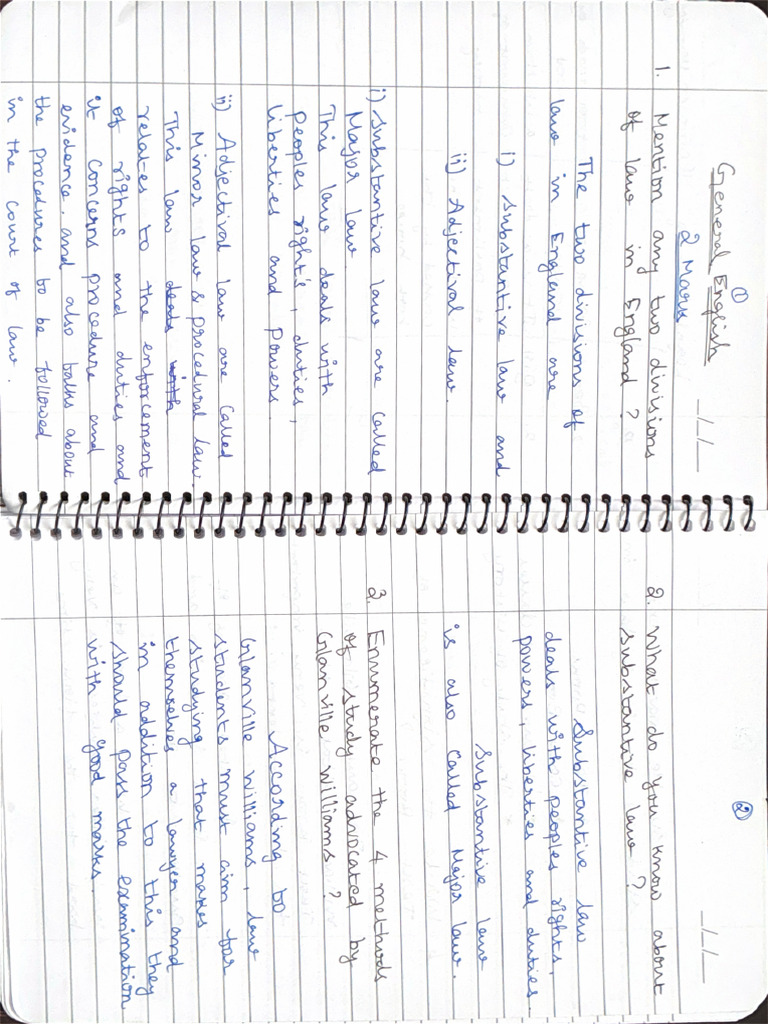 ①
General English
_/_/_
2 Marks
1. Mention any two divisions
of law in England?
The two divisions of
law in England are
i) substantive law and
ii) Adjectival law.
i) substantive law are called
Major law.
This law deals with
peoples rights, duties,
liberties and powers.
ii) Adjectival law are called
Minor law & procedural law.
This law deals with
relates to the enforcement
of rights and duties and
it concerns procedure and
evidence. and also talks about
the procedures to be followed
in the court of law.
②
_/_/_
2. What do you know about
substantive law?
Substantive law
deals with peoples rights,
powers, liberties and duties.
Substantive law
is also called Major law.
3. Enumerate the 4 methods
of study advocated by
Glanville Williams?
According to
Glanville Williams, law
students must aim for
studying that makes
themselves a lawyer and
in addition to this they
should pass the examination
with good marks.